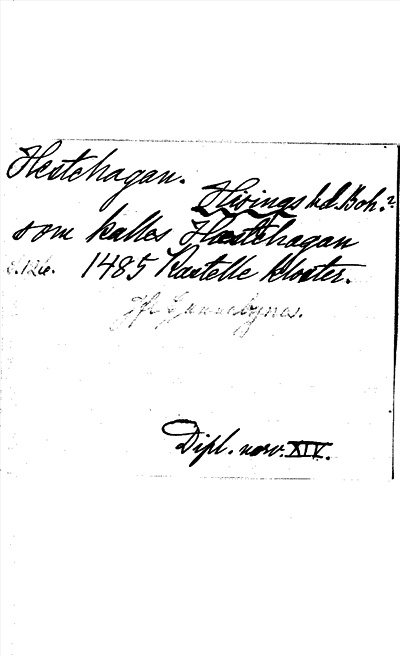 Hestehagan.
Hisings hd. Boh.?
som kalles Hæstehagan
s.126. 1485 Kastelle kloster.
Jfr
Dipl. norv. XIV.